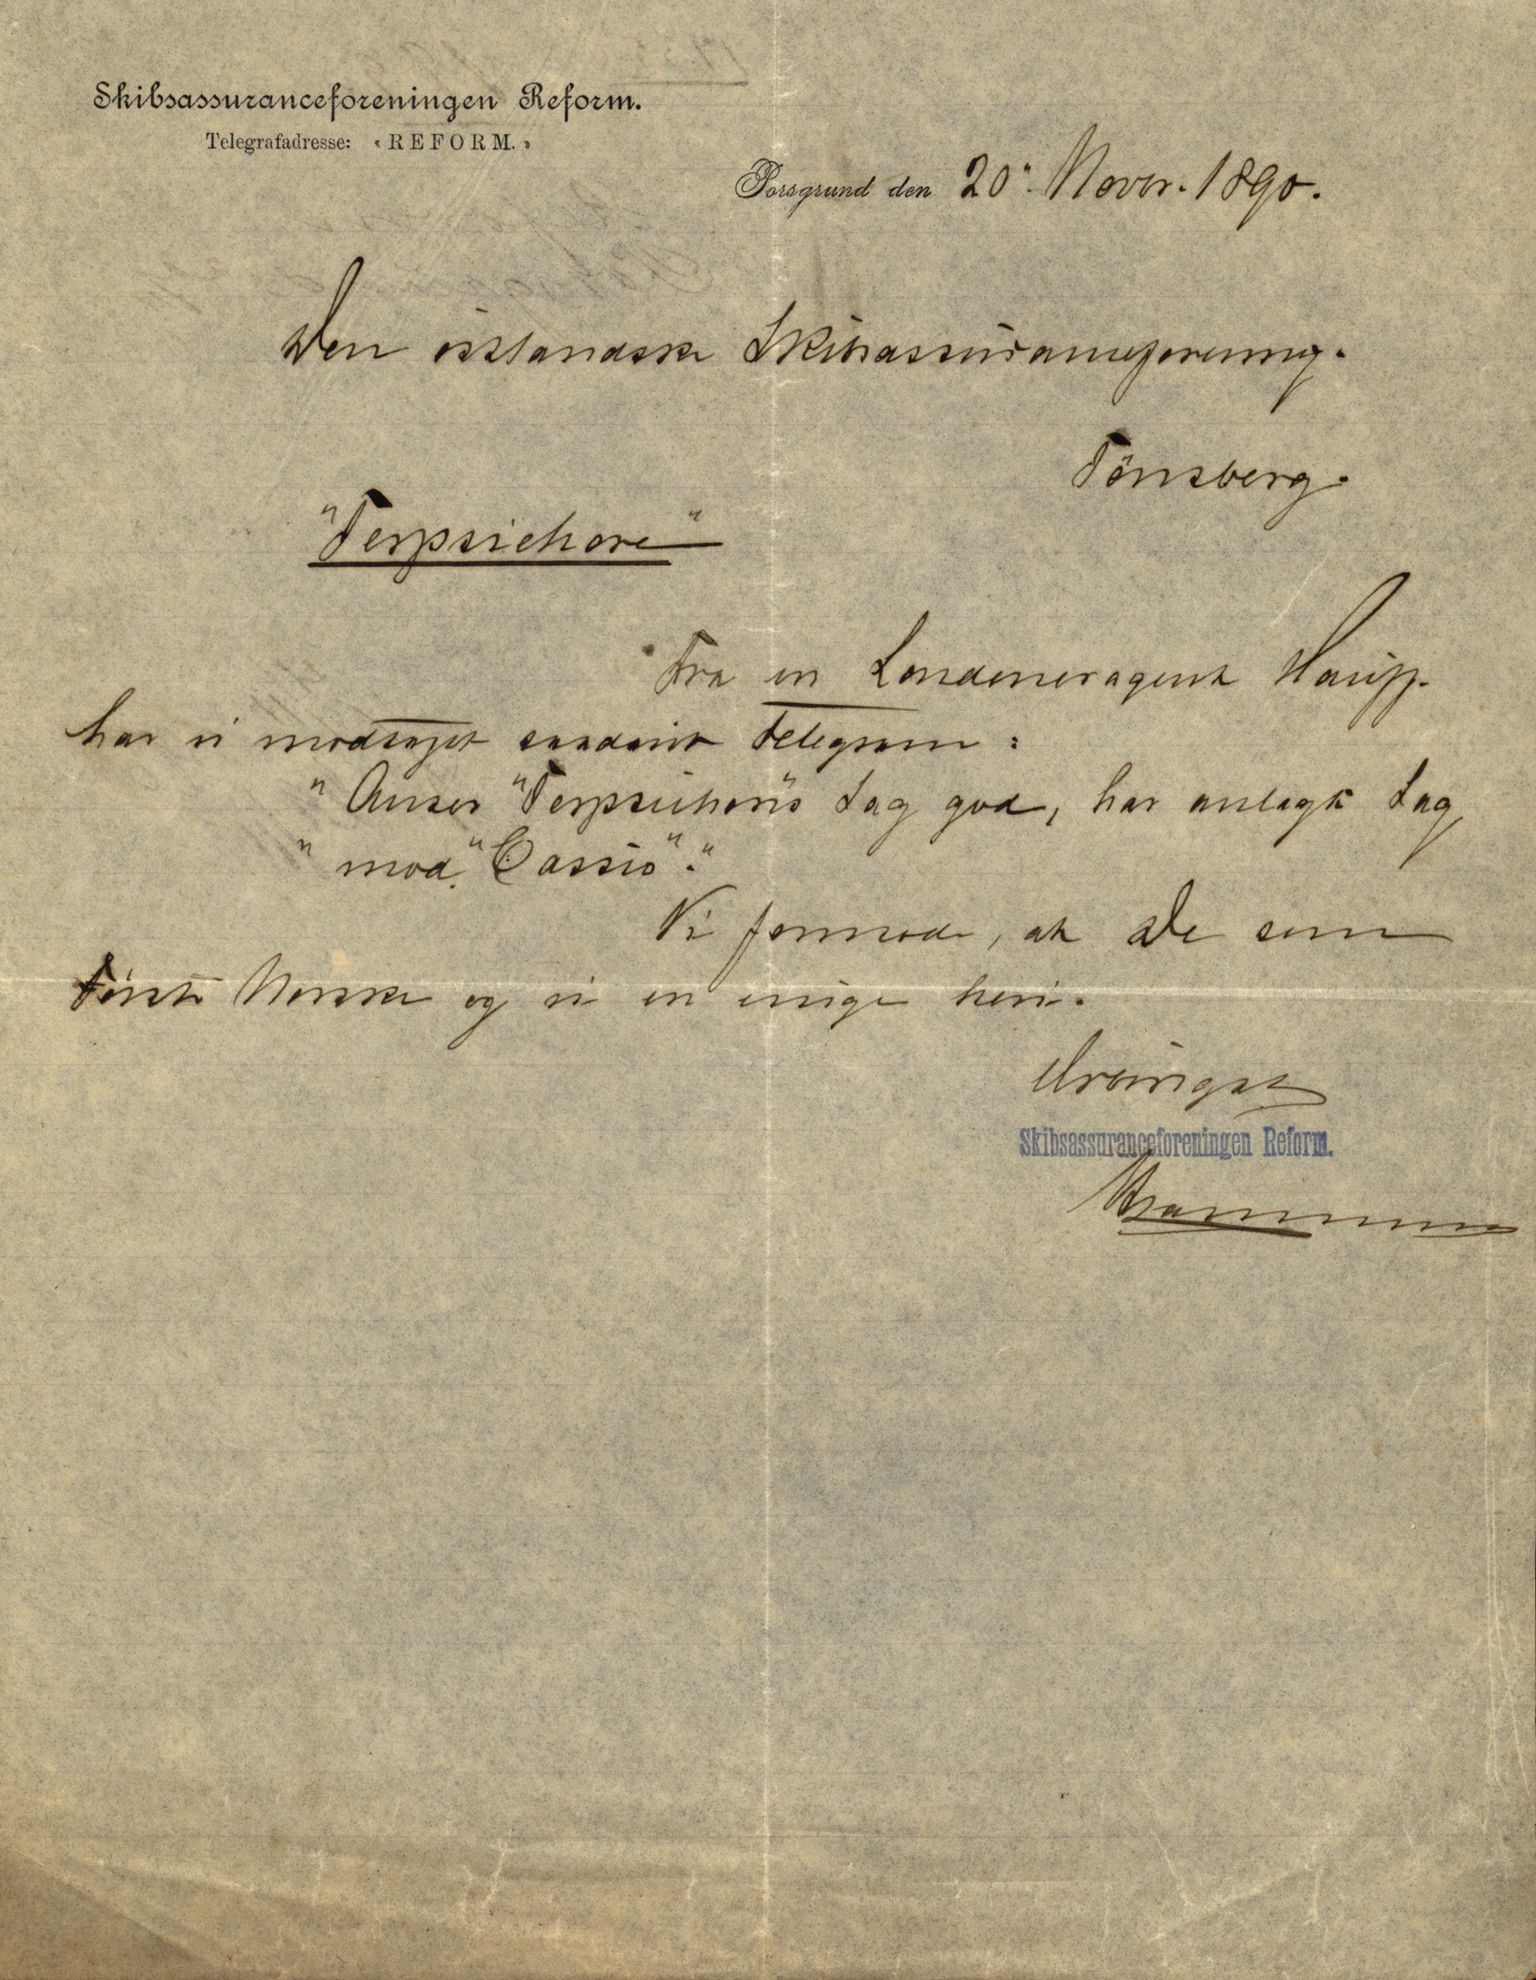 Skibsassuranceforeningen Reform.
Telegrafadresse: «REFORM.»
Porsgrund den 20. Novbr. 1890.
Den østlandske Skibsassuranceforening.
Tönsberg.
"Terpsichore"
Fra Londoneragent
har vi modtaget saadant Telegram:
"Anser "Terpsichore's Sag god, har anlagt Sag
" mod "Cassio"."
Vi formoder, at De som
Første Norske og vi er enige heri.
Ærbødigst
Skibsassuranceforeningen Reform.